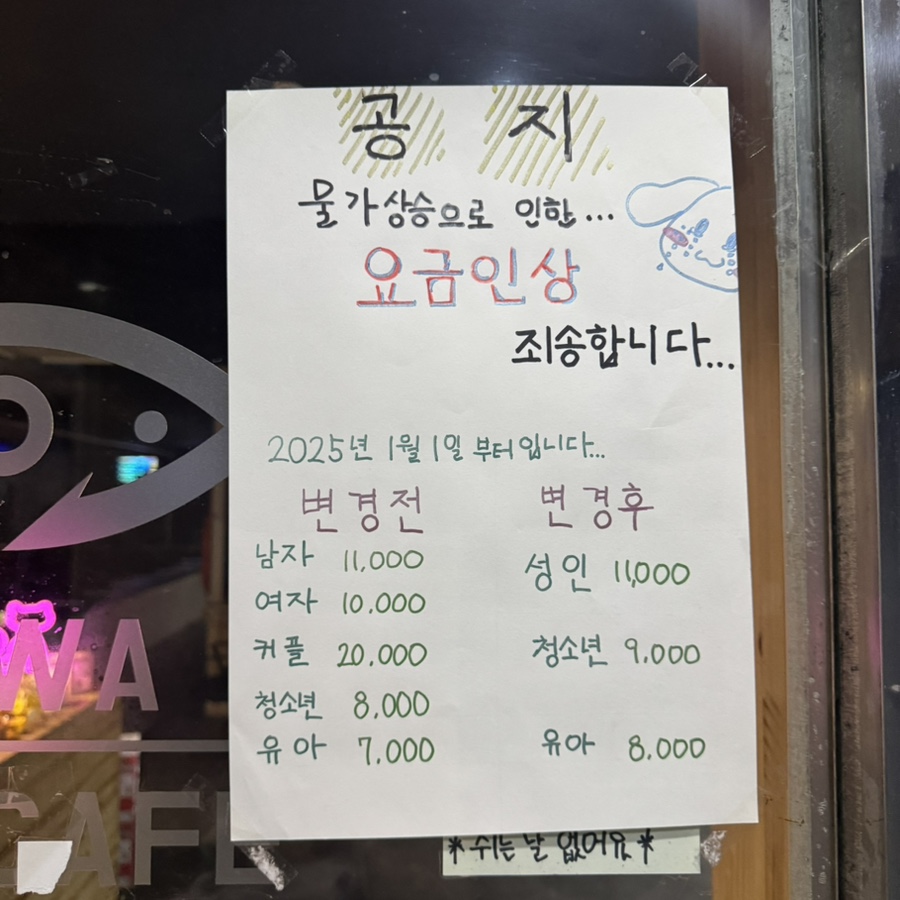 공 지
물가상승으로 인한...
요금인상
죄송합니다...
2025년 1월 1일 부터입니다...
변경전 변경후
남자 11,000 성인 11,000
여자 10.000
커플 20.000 청소년 9.000
청소년 8,000
유아 7.000 유아 8.000
*쉬는날 없어요*
WA
CAFE